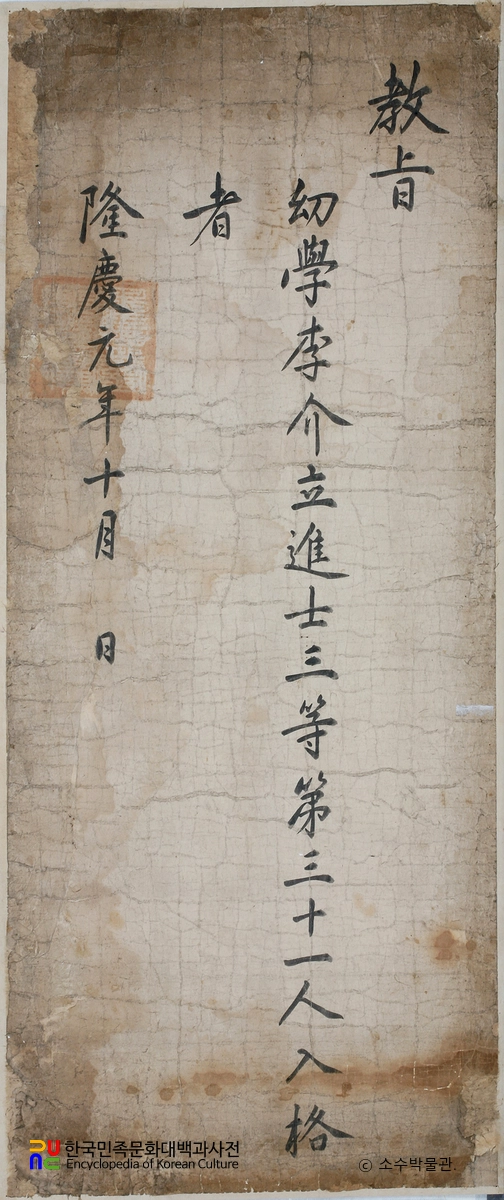 教旨
幼學李介立進士三等第三十一人入格
者
隆慶元年十月 日
한국민족문화대백과사전
Encyclopedia of Korean Culture
ⓒ 소수박물관.